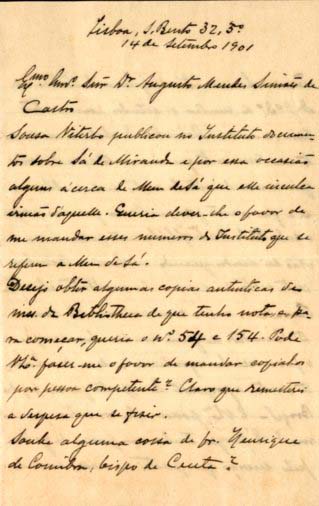 Lisboa, S. Bento 32, 5º
14 de setembro 1901
Exmo Amº. Snr Dr. Augusto Mendes Simões de
Castro
Sousa Viterbo publicou no Instituto documen-
tos sobre Sá de Miranda e por essa occasião
alguns ácerca de Mem de Sá que elle inculca
irmão d'aquelle. Queria dever-lhe o favor de
me mandar esses numeros do Instituto que se
referem a Mem de Sá.
Desejo obter algumas copias autenticas de
mss. da Bibliotheca de que tenho nota, e pa-
ra começar, queria o nº. 54 e 154. Pode
Vª. fazer-me o favor de mandar copial-os
por pessoa competente? Claro que remetterei
a despesa que se fizer.
Sabe alguma coisa de fr. Henrique
de Coimbra, bispo de Ceuta?